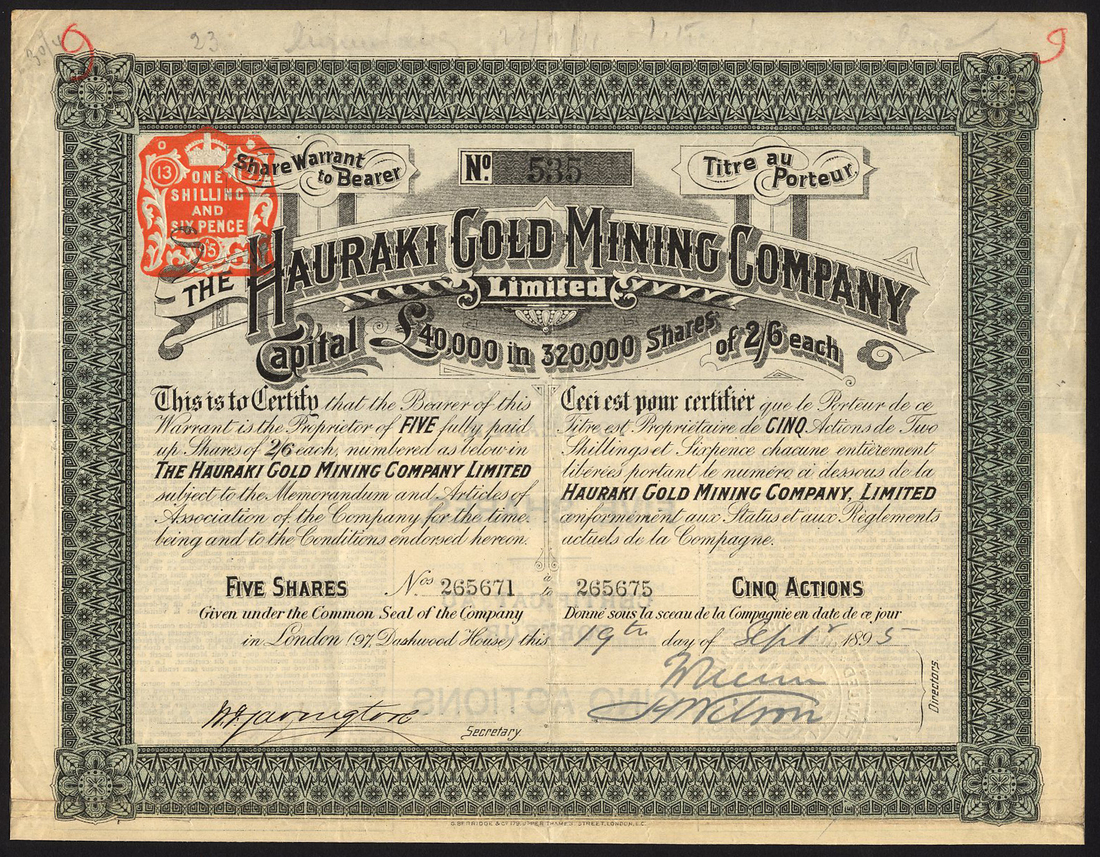 23.
9
9
13
ONE
SHILLING
AND
SIX PENCE
Share Warrant
to Bearer
No. 535
Titre au
Porteur.
THE HAURAKI GOLD MINING COMPANY
Limited
Capital £40,000 in 320,000 Shares of 2/6 each
This is to Certify that the Bearer of this
Warrant is the Proprietor of FIVE fully paid
up Shares of 2/6 each, numbered as below in
THE HAURAKI GOLD MINING COMPANY LIMITED
subject to the Memorandum and Articles of
Association of the Company for the time
being and to the Conditions endorsed hereon.
Ceci est pour certifier que le Porteur de ce
Titre est Propriétaire de CINQ Actions de Two
Shillings et Sixpence chacune entièrement
libérées portant le numéro ci dessous de la
HAURAKI GOLD MINING COMPANY, LIMITED
conformément aux Status et aux Règlements
actuels de la Compagne.
FIVE SHARES Nos. 265671 à to 265675 CINQ ACTIONS
Given under the Common Seal of the Company
Donné sous la sceau de la Compagnie en date de ce jour
in London (97, Dashwood House) this 19th day of Septr 1895
J Wilson
Directors.
Secretary.